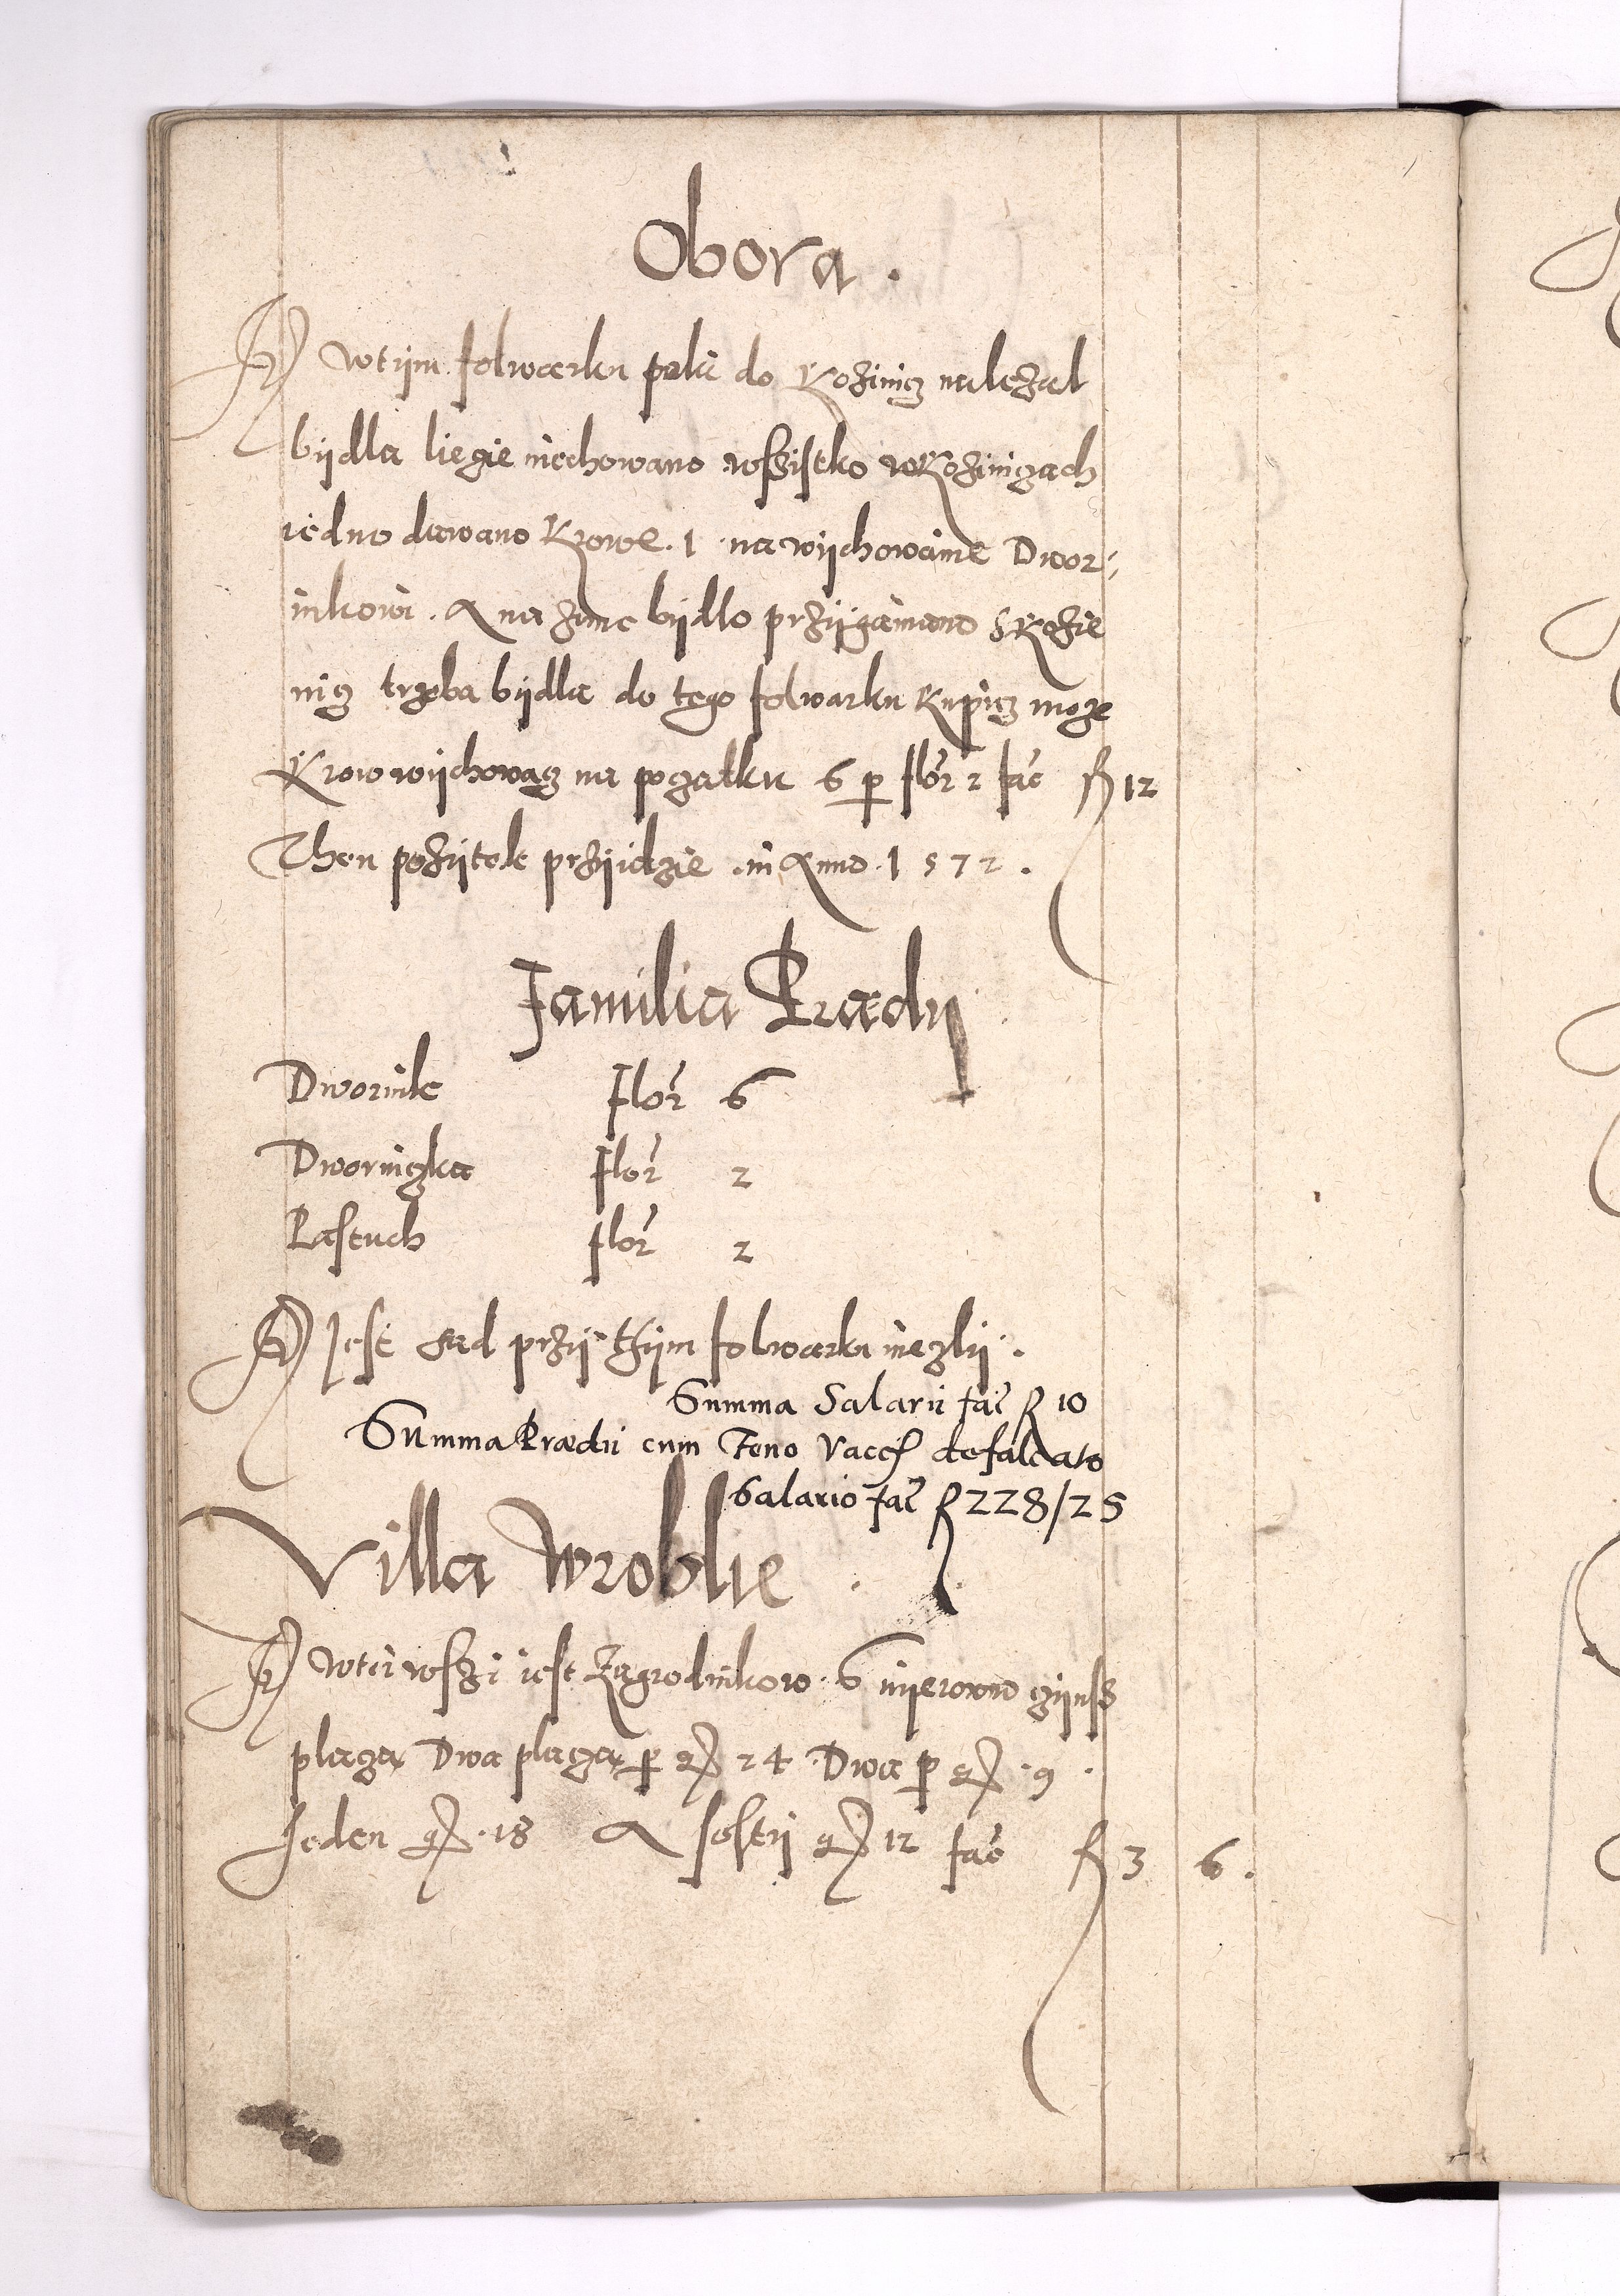 Obora.
Wtijm folwarku poki do Kozinicz nalezal
bijdla liezie niechowano wszistko wKozinizach
iedno dawano Krowe. 1 na wijchowanie Dwor-
nikowi. A na zime bijdlo przijganiano SKozie
nicz trzeba bijdla do tego folwarku Kupicz moze
Krow wijchowacz na poczatku 6 p flor 2 fac f 12
Then pozijtek przijidzie in Anno. 1572.
Familia Prædij
Dwornik Flor 6
Dworniczka Flor 2
Pastuch flor 2
Jest sad przij thijm folwarku niezlij.
Summa Salarii fac f 10
Summa Prædii cum Feno Vacc defalcato
Salario fac f 228/25
Villa Wroblie
Wtei wszi iest Zagrodnikow. 6 nijerowno czijnsz
placza Dwa placza p g 24. Dwa p g. 9.
Jeden g. 18 A sostij g 12 fac f 3 6.